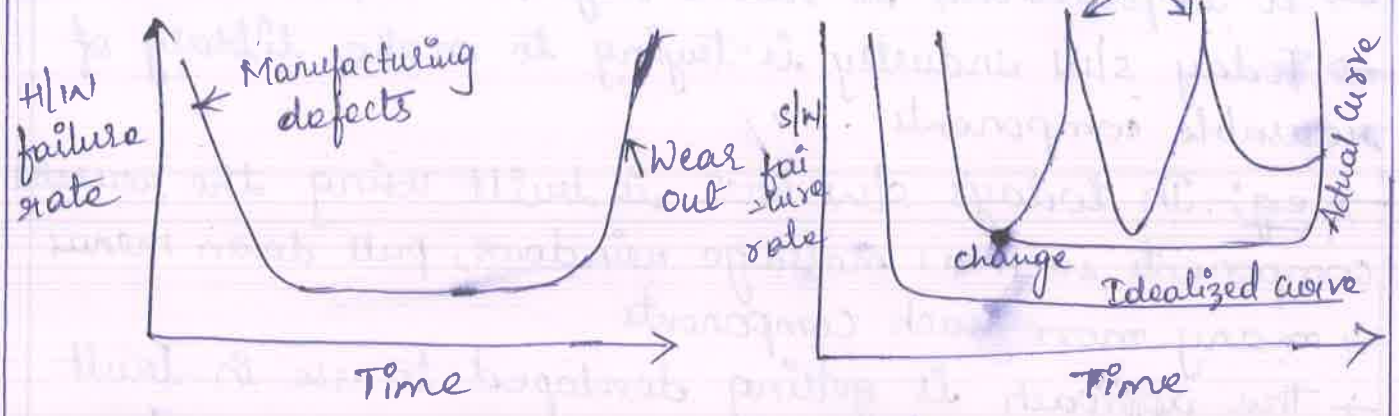 H/W
failure
rate
Manufacturing
defects
Wear
out
Time
S/W
fai
-lure
rate
change
Idealized curve
Actual Curve
Time